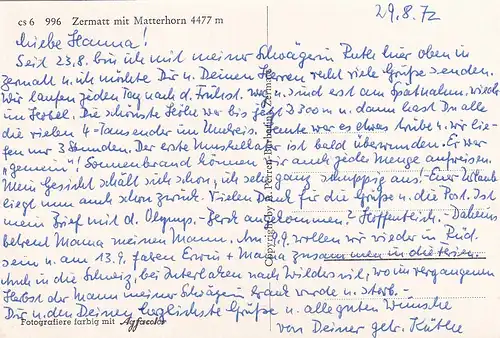 cs 6 996 Zermatt mit Matterhorn 4477 m
29.8.72
Liebe Hanna!
Seit 23.8. bin ich mit meiner Schwägerin Ruth hier oben in
Zermatt u. ich möchte Dir u. Deinen Herren recht viele Grüße senden.
Wir laufen jeden Tag nach d. Frühst. weg u. sind erst am Spätnahm. wieder
im Hotel. Die schönste Höhe war bis jetzt 3300 m u. dann hast Du alle
die vielen 4-Tausender im Umkreis. Heute war es etwas trübe u. wir lie-
fen nur 3 Stunden. Der erste Muskelkater ist bald überwunden. Er war
"gemein"! Sonnenbrand können wir auch jede Menge aufweisen.
Mein Gesicht schält sich schon, ich sehe ganz schuppig aus! Euer Urlaub
liegt nun auch schon zurück. Vielen Dank für die Grüße u. die Post. Ist
mein Brief mit d. Olymp. angekommen? Hoffentlich. - Daheim
betreut Mama meinen Mann. Am 9. wollen wir wieder in
sein u. am 13.9. fahren Erwin + Mama zusammen in die Ferien.
Auch in die Schweiz, bei Interlaken nach Wilderswil, wo im vergangenen
Herbst der Mann meiner Schwägerin krank wurde u. starb. -
Dir u. den Deinen herzlichste Grüße u. alle guten Wünsche
von Deiner getr. Käthe
Fotografiere farbig mit Agfacolor
Copyright by A. Perren-Barberini, Zermatt